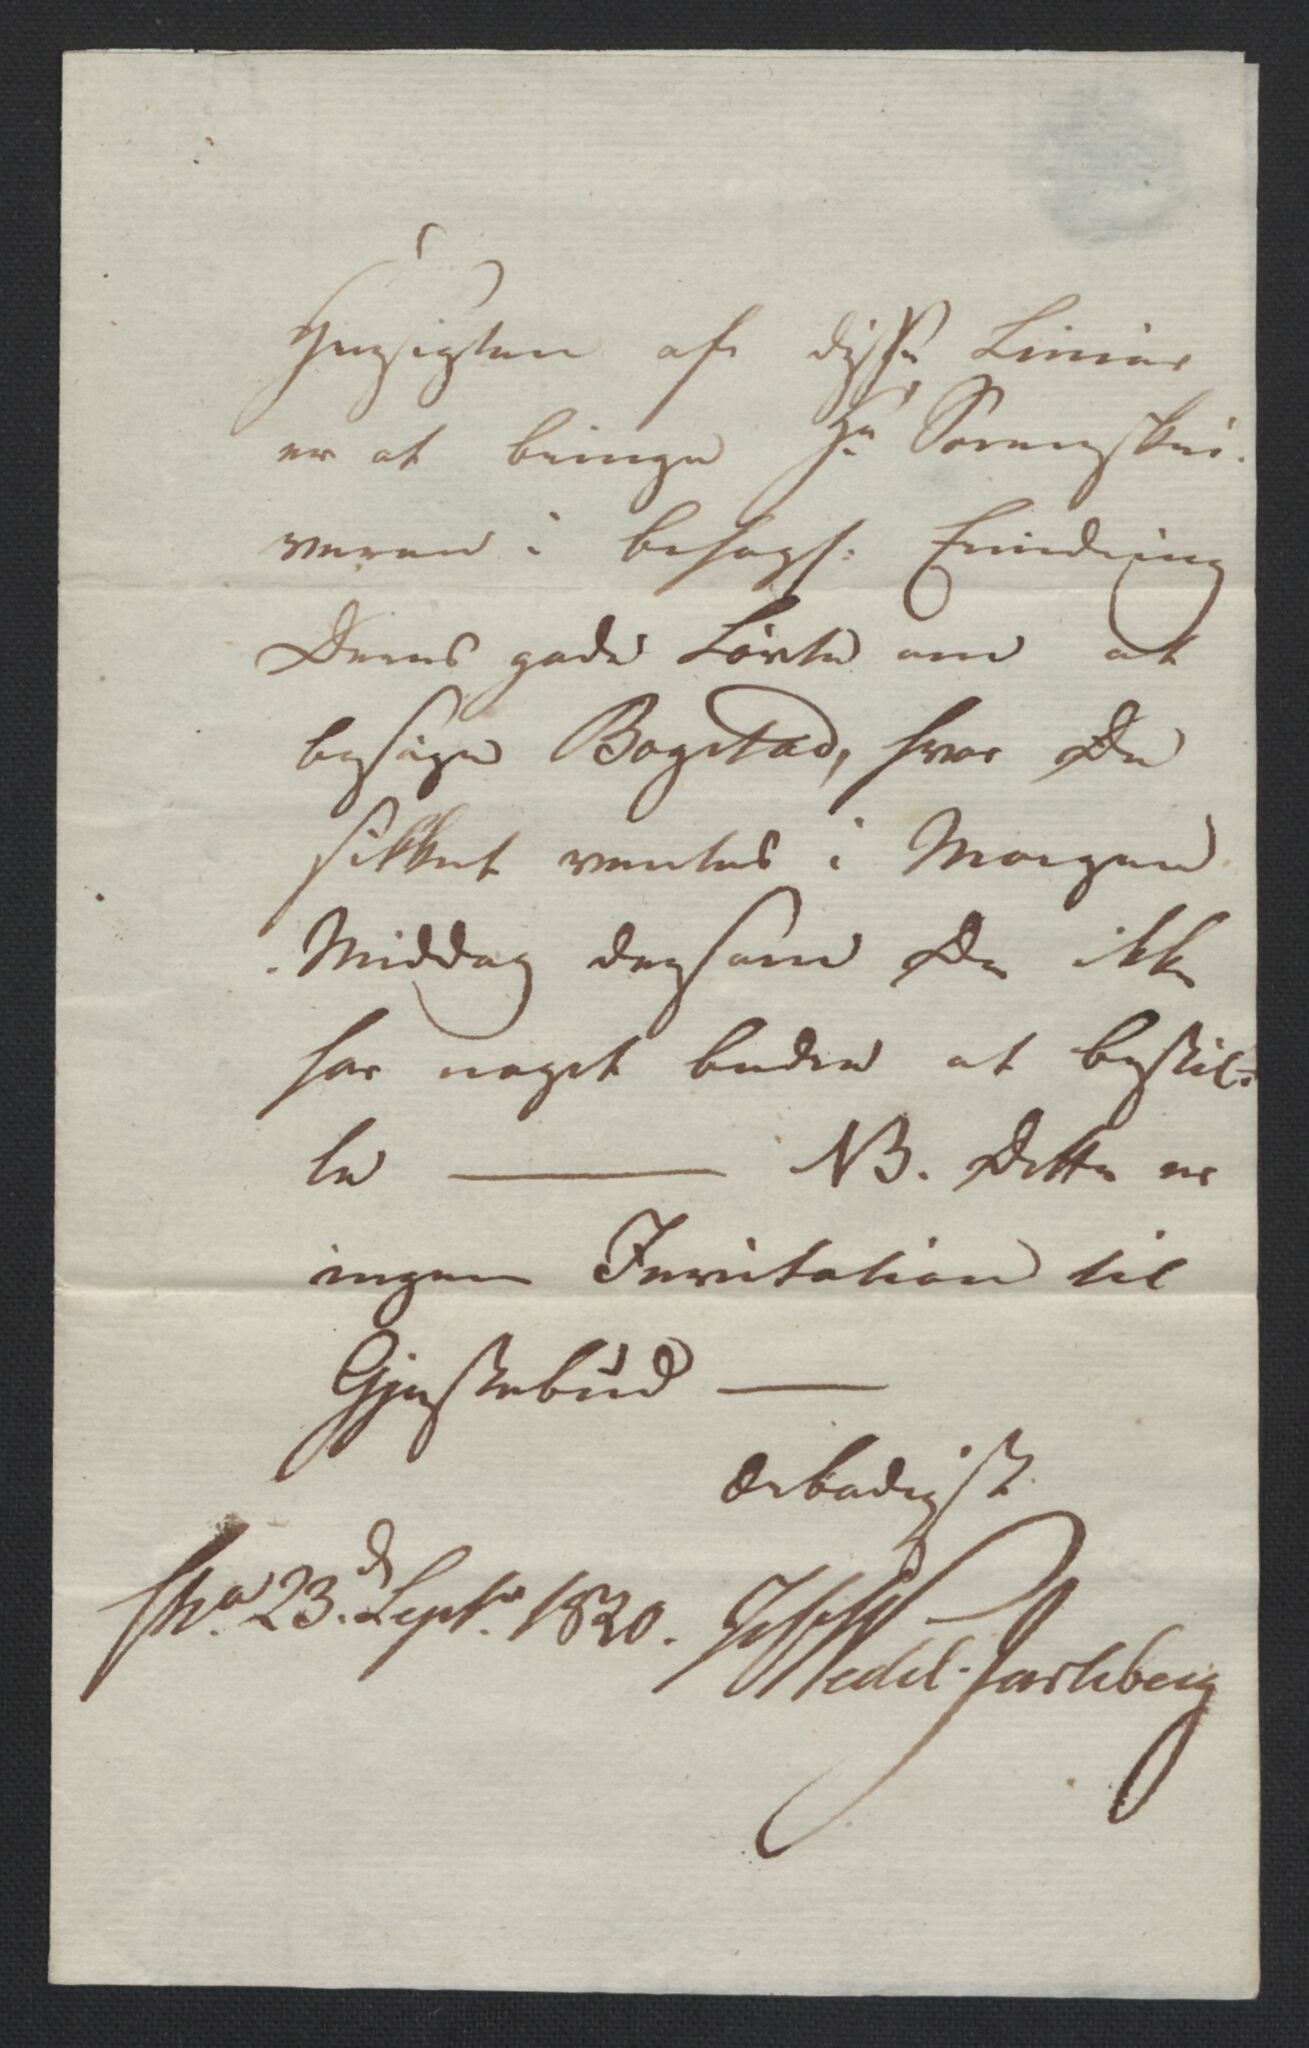 Hensigten af disse Linier
er at bringe Hr Sorenskri-
veren i behagl: Erindring
Deres gode Løvte om at
besøge Bogstad, hvor De
sikkert ventes i Morgen
Middag dersom De ikke
har noget bedre at bestil-
le — NB. Dette er
ingen Invitation til
Gjæstebud —
ærbødigst
Cha 23.de Septr. 1820. Wedel-Jarlsberg